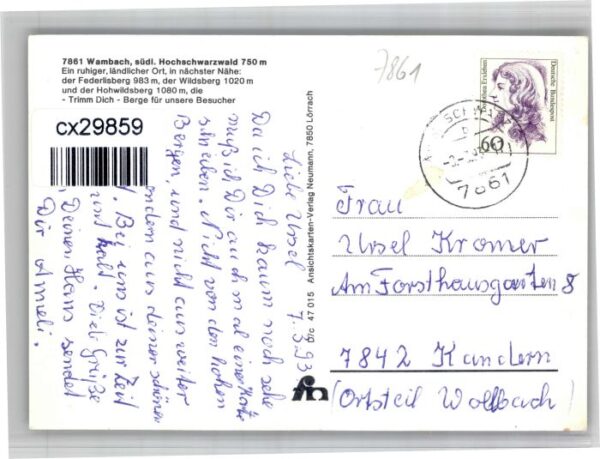 7861 Wambach, südl. Hochschwarzwald 750 m
Ein ruhiger, ländlicher Ort, in nächster Nähe:
der Federlisberg 983 m, der Wildsberg 1020 m
und der Hohwildsberg 1080 m, die
- Trimm Dich - Berge für unsere Besucher
cx29859
7861
Deutsche Bundespost
60
7861
7.3.93
Liebe Ursel
Da ich Dich kaum noch sehe
muß ich Dir auch mal eine Karte
schreiben. Nicht von den hohen
Bergen, und nicht aus weiter
sondern aus deiner schönen
Bei uns ist zur Zeit
und kalt. Viele Grüße
Deinen Hans sendet
Dir Ameli.
b/c 47 015 Ansichtskarten-Verlag Neumann, 7850 Lörrach
Frau
Ursel Kromer
Am Forsthausgarten 8
7842 Kandern
(Ortsteil Wollbach)